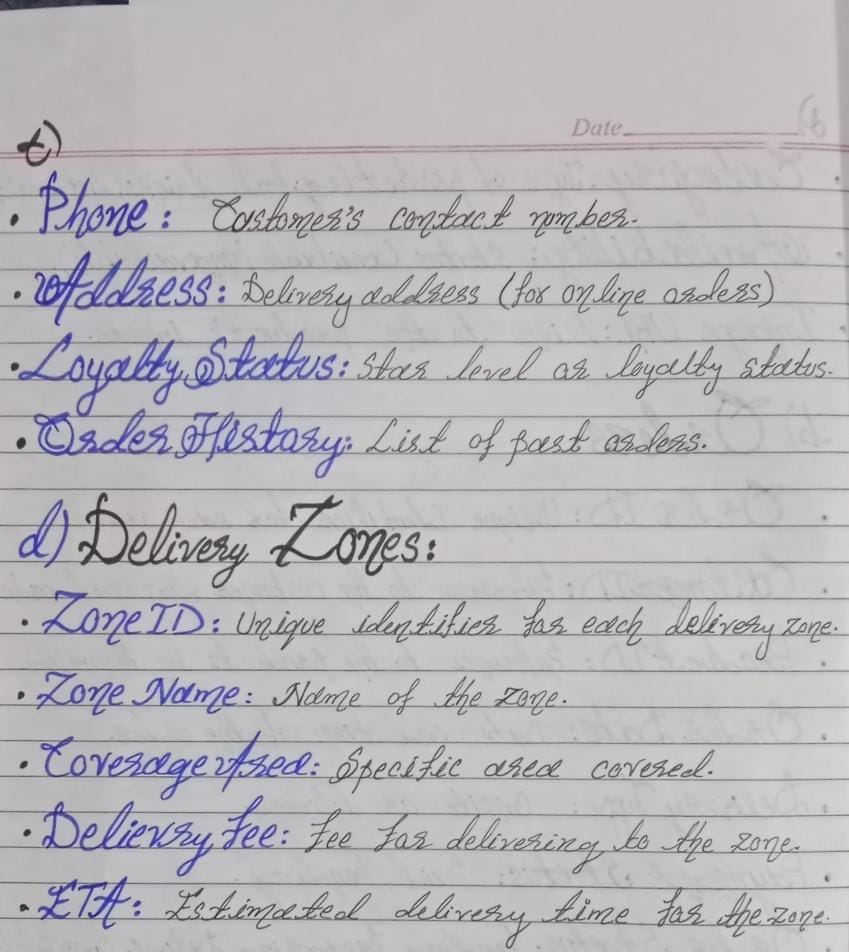 Date
c)
• Phone: Customer's contact number.
• Address: Delivery address (for online orders)
• Loyalty Status: Star level or loyalty status.
• Order History: List of past orders.
d) Delivery Zones:
• Zone ID: Unique identifier for each delivery zone.
• Zone Name: Name of the zone.
• Coverage Area: Specific area covered.
• Delievry Fee: Fee for delivering to the zone.
• ETA: Estimated delivery time for the zone.